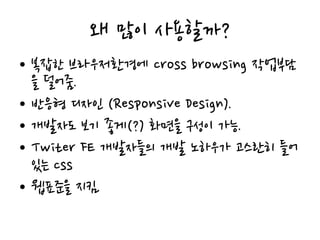 왜 많이 사용할까?
• 복잡한 브라우저환경에 cross browsing 작업부담
을 덜어줌.
• 반응형 디자인 (Responsive Design).
• 개발자도 보기 좋게(?) 화면을 구성이 가능.
• Twiter FE 개발자들의 개발 노하우가 고스란히 들어
있는 css
• 웹표준을 지킴